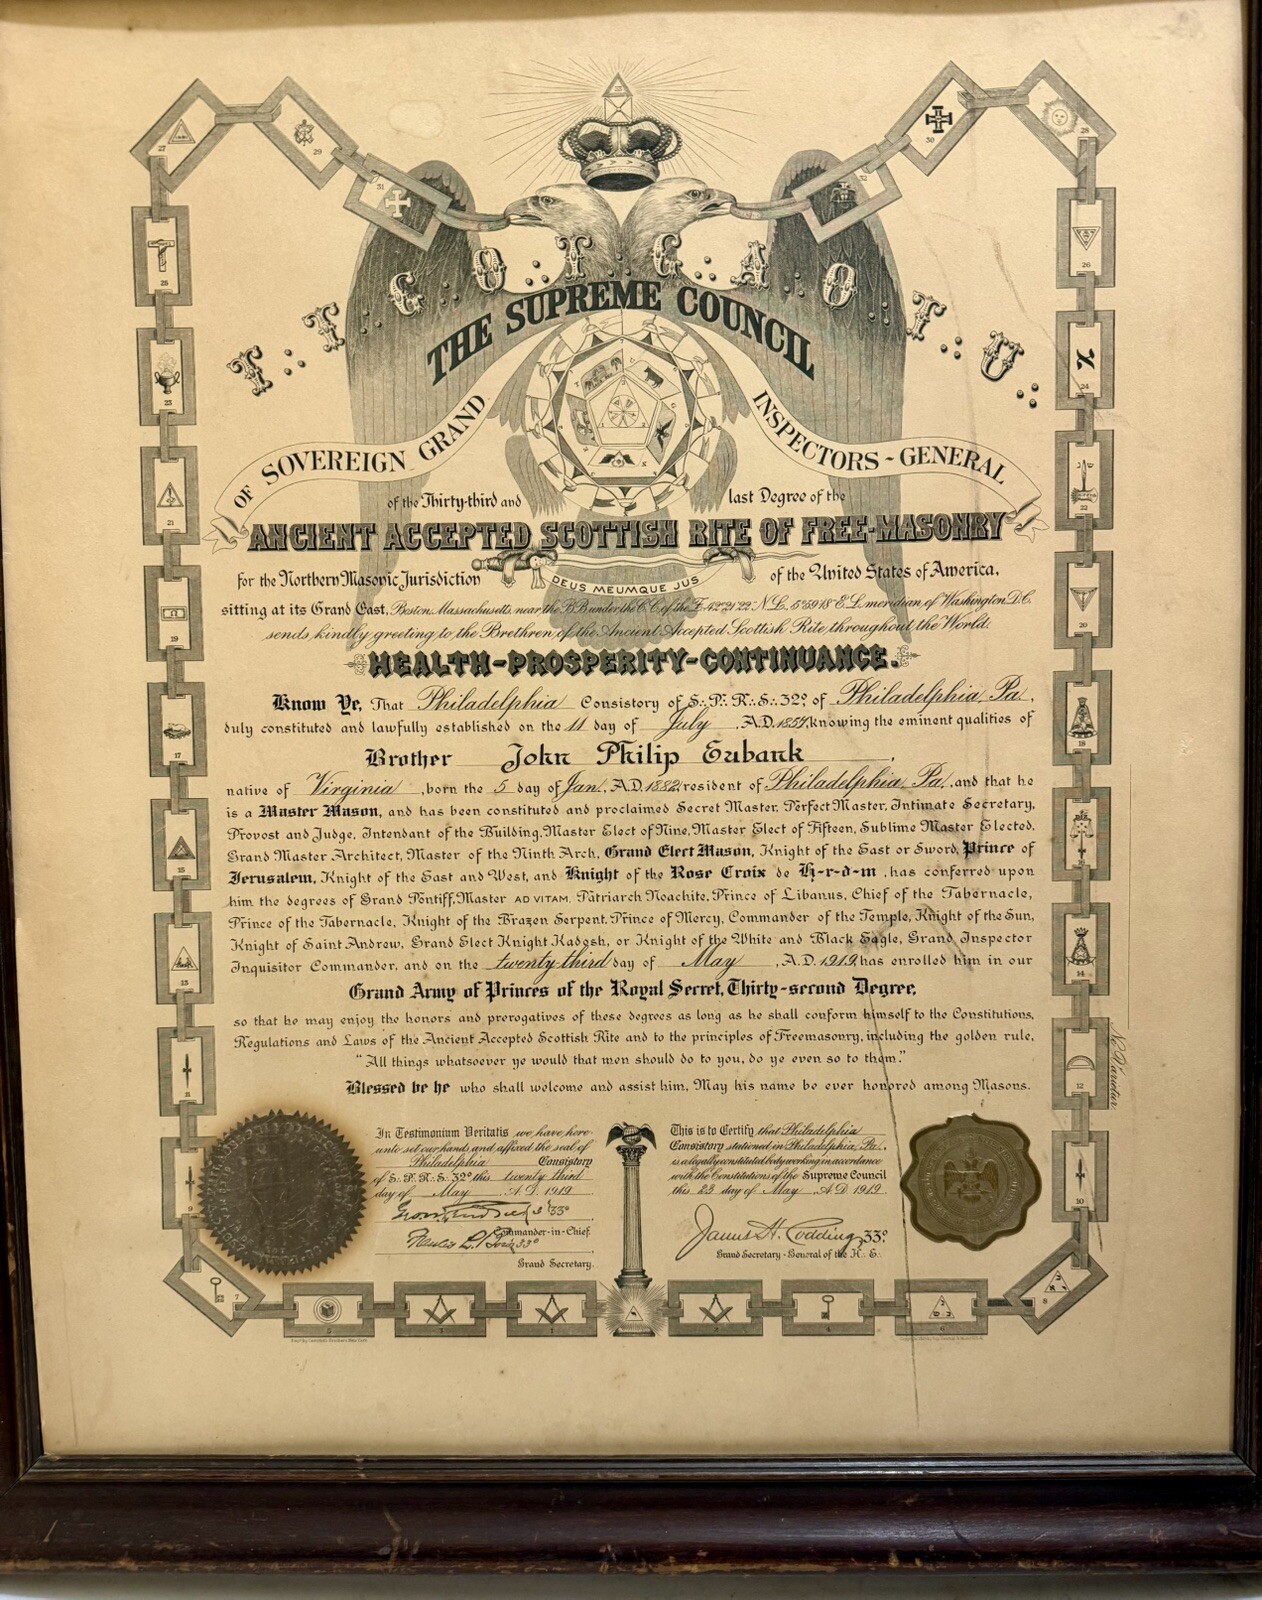 T∴T∴G∴O∴T∴G∴A∴O∴T∴U∴
THE SUPREME COUNCIL
OF SOVEREIGN GRAND INSPECTORS-GENERAL
of the Thirty-third and last Degree of the
ANCIENT ACCEPTED SCOTTISH RITE OF FREE-MASONRY
for the Northern Masonic Jurisdiction of the United States of America,
DEUS MEUMQUE JUS
sitting at its Grand East, Boston, Massachusetts, near the B.B. under the C.C. of the Z. 42°21'22" N.L. 5°59'18" E.L. meridian of Washington D.C.
sends kindly greeting to the Brethren of the Ancient Accepted Scottish Rite throughout the World.
HEALTH-PROSPERITY-CONTINUANCE.
Know Ye, That Philadelphia Consistory of S∴P∴R∴S∴32° of Philadelphia, Pa.,
duly constituted and lawfully established on the 11 day of July A.D. knowing the eminent qualities of
Brother John Philip Eubank,
native of Virginia, born the 5 day of Jan. A.D. 1882 resident of Philadelphia, Pa. and that he
is a Master Mason, and has been constituted and proclaimed Secret Master, Perfect Master, Intimate Secretary,
Provost and Judge, Intendant of the Building, Master Elect of Nine, Master Elect of Fifteen, Sublime Master Elected,
Grand Master Architect, Master of the Ninth Arch, Grand Elect Mason, Knight of the East or Sword, Prince of
Jerusalem, Knight of the East and West, and Knight of the Rose Croix de H-r-d-m, has conferred upon
him the degrees of Grand Pontiff, Master AD VITAM, Patriarch Noachite, Prince of Libanus, Chief of the Tabernacle,
Prince of the Tabernacle, Knight of the Brazen Serpent, Prince of Mercy, Commander of the Temple, Knight of the Sun,
Knight of Saint Andrew, Grand Elect Knight Kadosh, or Knight of the White and Black Eagle, Grand Inspector
Inquisitor Commander, and on the twenty third day of May, A.D. 1919, has enrolled him in our
Grand Army of Princes of the Royal Secret, Thirty-second Degree,
so that he may enjoy the honors and prerogatives of these degrees as long as he shall conform himself to the Constitutions,
Regulations and Laws of the Ancient Accepted Scottish Rite and to the principles of Freemasonry, including the golden rule,
"All things whatsoever ye would that men should do to you, do ye even so to them."
Blessed be he who shall welcome and assist him. May his name be ever honored among Masons.
Ne Varietur
In Testimonium Veritatis we have here-
unto set our hands and affixed the seal of
Philadelphia Consistory
of S. P. R. S. 32° this twenty third
day of May A.D. 1919
33°
Commander-in-Chief.
33°
Grand Secretary.
This is to Certify that Philadelphia
Consistory stationed in Philadelphia, Pa.,
is a legally constituted body working in accordance
with the Constitutions of the Supreme Council
this 23 day of May A.D. 1919.
James H. Codding, 33°
Grand Secretary-General of the H. E.